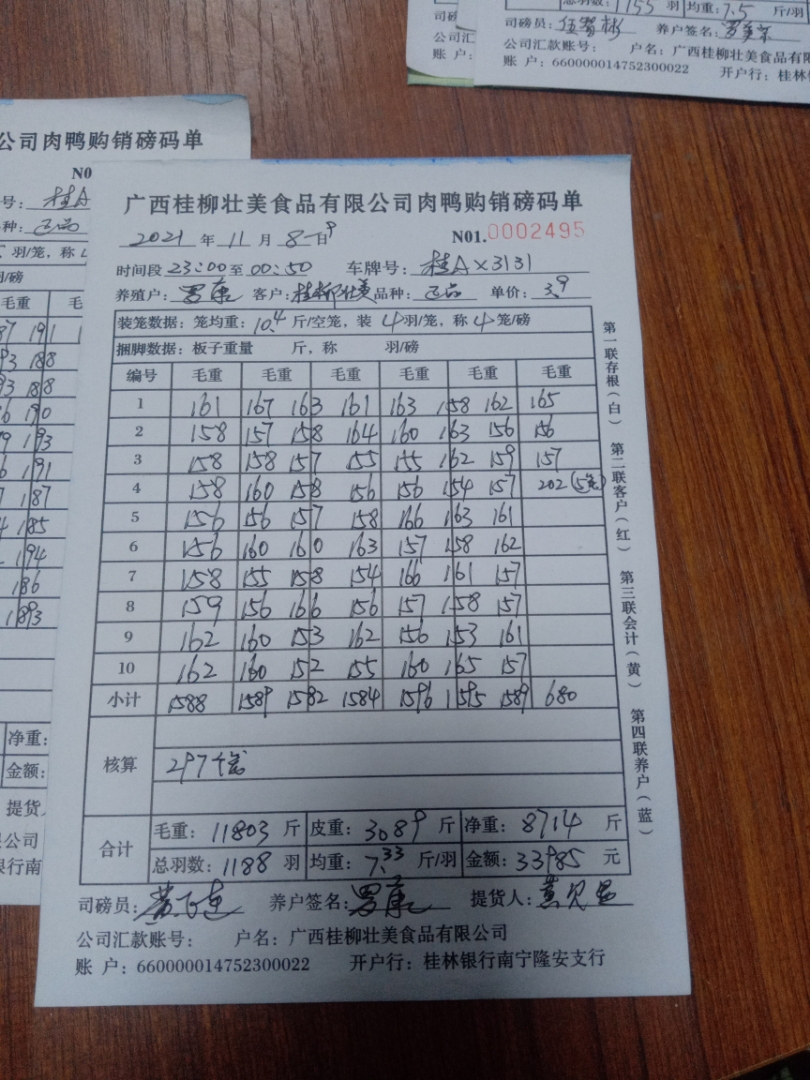 总羽数：1155 羽 均重：7.5 斤/羽
司磅员： 养户签名：
公司汇款账号： 户名：广西桂柳壮美食品有限
账 户：660000014752300022 开户行：桂林
司磅
公司汇
账 户：
公司肉鸭购销磅码单
N0
号：桂A
种：正品
羽/笼，称
/磅
毛重 毛
191
188
188
190
193
191
187
185
194
186
193
净重：
金额：
提货
公司
银行南
广西桂柳壮美食品有限公司肉鸭购销磅码单
2021 年 11 月 8-9 日 N01.0002495
时间段 23:00 至 00:50 车牌号：桂AX3131
养殖户：罗康 客户：桂柳壮美 品种：正品 单价：3.9
装笼数据：笼均重：10.4 斤/空笼，装 4 羽/笼，称 4 笼/磅
捆脚数据：板子重量 斤，称 羽/磅
编号 毛重 毛重 毛重 毛重 毛重 毛重
1 161 167 163 161 163 158 162 165
2 158 157 158 164 160 163 156 156
3 158 158 157 155 155 162 159 157
4 158 160 158 156 156 154 157 202(5笼)
5 156 156 157 158 166 163 161
6 156 160 160 163 157 158 162
7 158 155 158 154 166 161 157
8 159 156 166 156 157 158 157
9 162 160 153 162 156 153 161
10 162 160 152 155 160 165 157
小计 1588 1589 1582 1584 1596 1595 1589 680
核算 297个笼
合计 毛重：11803 斤 皮重：3089 斤 净重：8714 斤
总羽数：1188 羽 均重：7.33 斤/羽 金额：33985 元
司磅员： 养户签名：罗康 提货人：
公司汇款账号： 户名：广西桂柳壮美食品有限公司
账 户：660000014752300022 开户行：桂林银行南宁隆安支行
第一联存根（白） 第二联客户（红） 第三联会计（黄） 第四联养户（蓝）